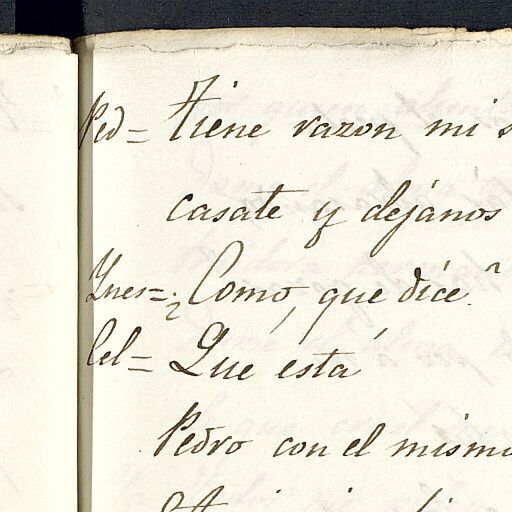 Ped= tiene razon mi
casate y dejános
Ynes=¿Como, que díce?
Cel= Qué está
Pedro con el mismo